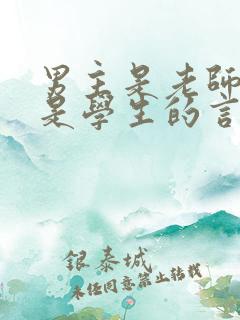 男主是老師
是學生的言
銀泰城
未任同意禁止轉載